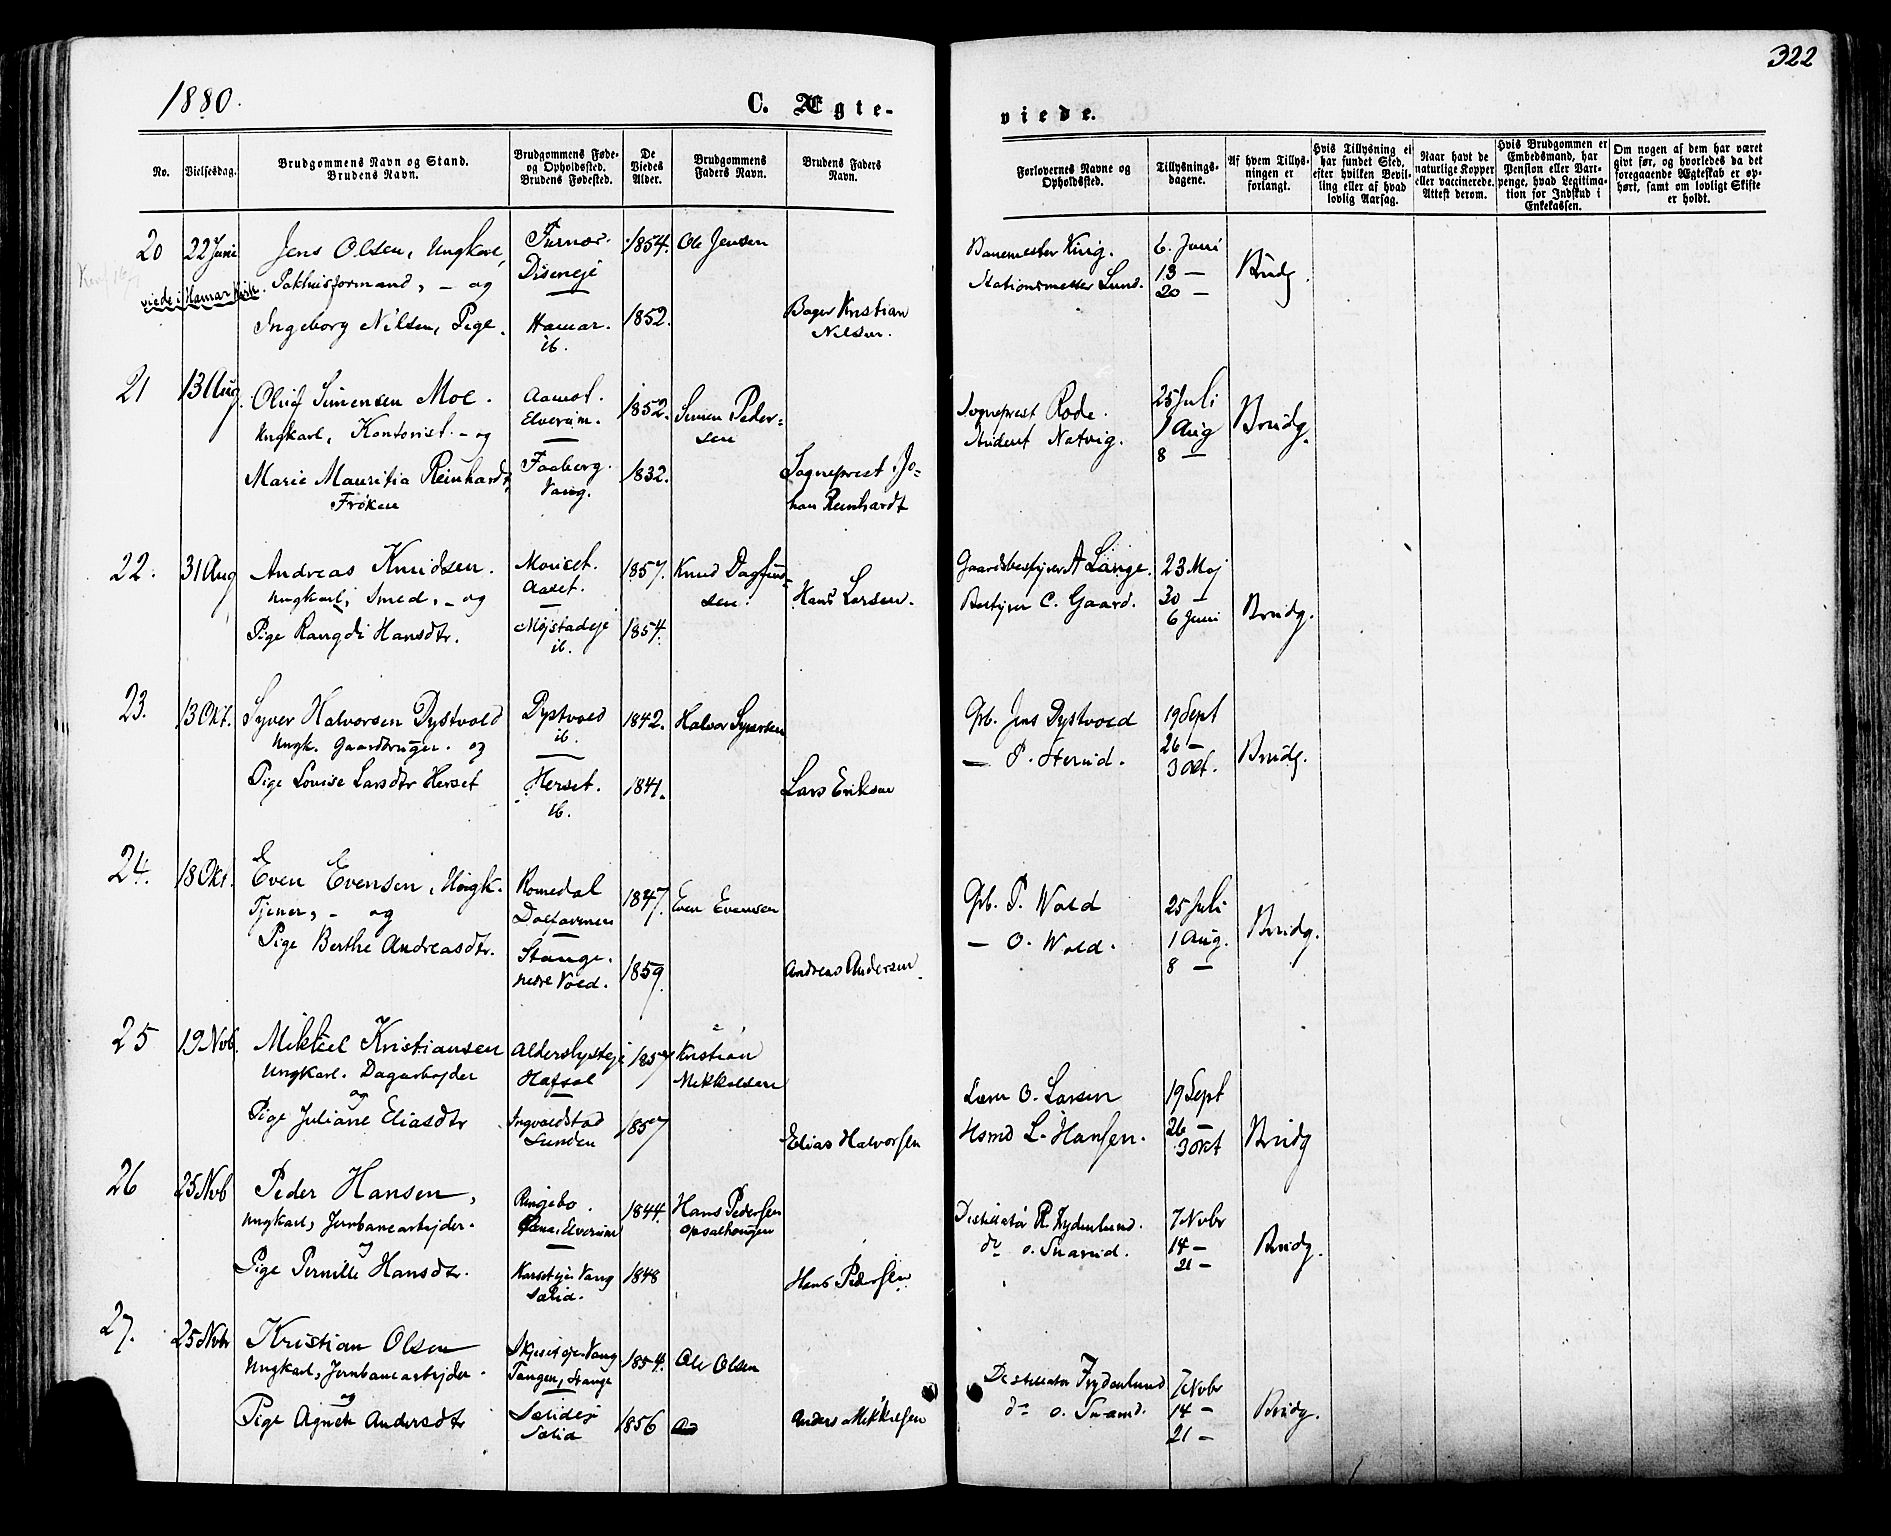 322
1880.
C. Ægte-
viede.
No.
Vielsesdag.
Brudgommens Navn og Stand.
Brudens Navn.
Brudgommens Føde-
og Opholdssted.
Brudens Fødested.
De
Viedes
Alder.
Brudgommens
Faders Navn.
Brudens Faders
Navn.
Forlovernes Navne og
Opholdssted.
Tillysnings-
dagene.
Af hvem Tillys-
ningen er
forlangt.
Hvis Tillysning ei
har fundet Sted,
efter hvilken Bevil-
ling eller af hvad
lovlig Aarsag.
Naar havt de
naturlige Kopper
eller vaccinerede.
Attest derom.
Hvis Brudgommen er
Embedsmand, har
Pension eller Vart-
penge, hvad Legitima-
tion for Indskud i
Enkekassen.
Om nogen af dem har været
givt før, og hvorledes da det
foregaaende Ægteskab er op-
hørt, samt om lovligt Skifte
er holdt.
20 22 Juni Jens Olsen, Ungkarl, Furnes. 1854. Ole Jensen
Pakhusformand, - og Diseneje
viede i Hamar Kirk.
Ingeborg Nilsen, Pige. Hamar. 1852. Bager Kristian
ib. Nilsen.
Banemester King. 6. Juni
Stationsmester Lund. 13 — Brudg.
20 —
21 13 Aug. Oluf Simensen Moe. Aamot. 1852. Simen Peder-
Ungkarl, Kontorist - og Elverum. sen
Marie Mauritia Reinhardt, Faaberg. 1832. Sogneprest Jo-
Frøken Vang. han Reinhardt
Sogneprest Rode. 25 Juli
Student Natvig. 1 Aug Brudg.
8 —
22. 31 Aug Andreas Knudsen. 1857. Knud Dagfins-
Ungkarl, Smed, - og Aaset. sen. Hans Larsen.
Pige Rangdi Hansdtr. Mojstadeje 1854.
ib.
Gaardsbestyrer A Lange. 23 Maj
Bestyrer C. Gaard. 30 —
6 Juni Brudg.
23. 13 Okt. Syver Halvorsen Dystvold Dystvold 1842. Halvor Syversen
Ungk. Gaardbruger. og ib.
Pige Louise Larsdtr Herset Herset. 1841. Lars Eriksen
ib.
Grb. Jens Dystvold 19 Sept
— P. 26 — Brudg.
3 Okt.
24. 18 Okt. Even Evensen, Ungk. Romedal 1847. Even Evensen
Tjener, - og
Pige Berthe Andreasdtr. Stange. 1859. Andreas Andersen
nedre Vold.
Grb. P. Wold 25 Juli
— O. Wold. 1 Aug. Brudg.
8 —
25 19 Nob. Mikkel Kristiansen Alderslysteje 1857 Kristian
Ungkarl. Dagarbejder Hafsal Mikkelsen
og
Pige Juliane Eliasdtr Ingvaldstad 1857 Elias Halvorsen
Lunden
Lærer O. Larsen 19 Sept
Hsmd L. Hansen. 26 —
3 Okt Brudg
26 25 Nob Peder Hansen, Ringebo. 1844. Hans Pedersen
Ungkarl, Jernbanearbejder. Elverum Opsalhougen
og
Pige Pernille Hansdtr. Vang 1848 Hans Pedersen
Sælid.
Destillatør R. Frydenlund. 7 Nobr
do O. 14 — Brudg.
21 —
27. 25 Nobr Kristian Olsen Skjeset eje Vang 1854. Ole Olsen
Ungkarl, Jernbanearbejder. Tangen, Stange
og
Pige Agnete Andersdtr Sælideje 1856 Anders Mikkelsen
Sælid
Destillatør Frydenlund 7 Nobr
do O. 14 — Brudg.
21 —